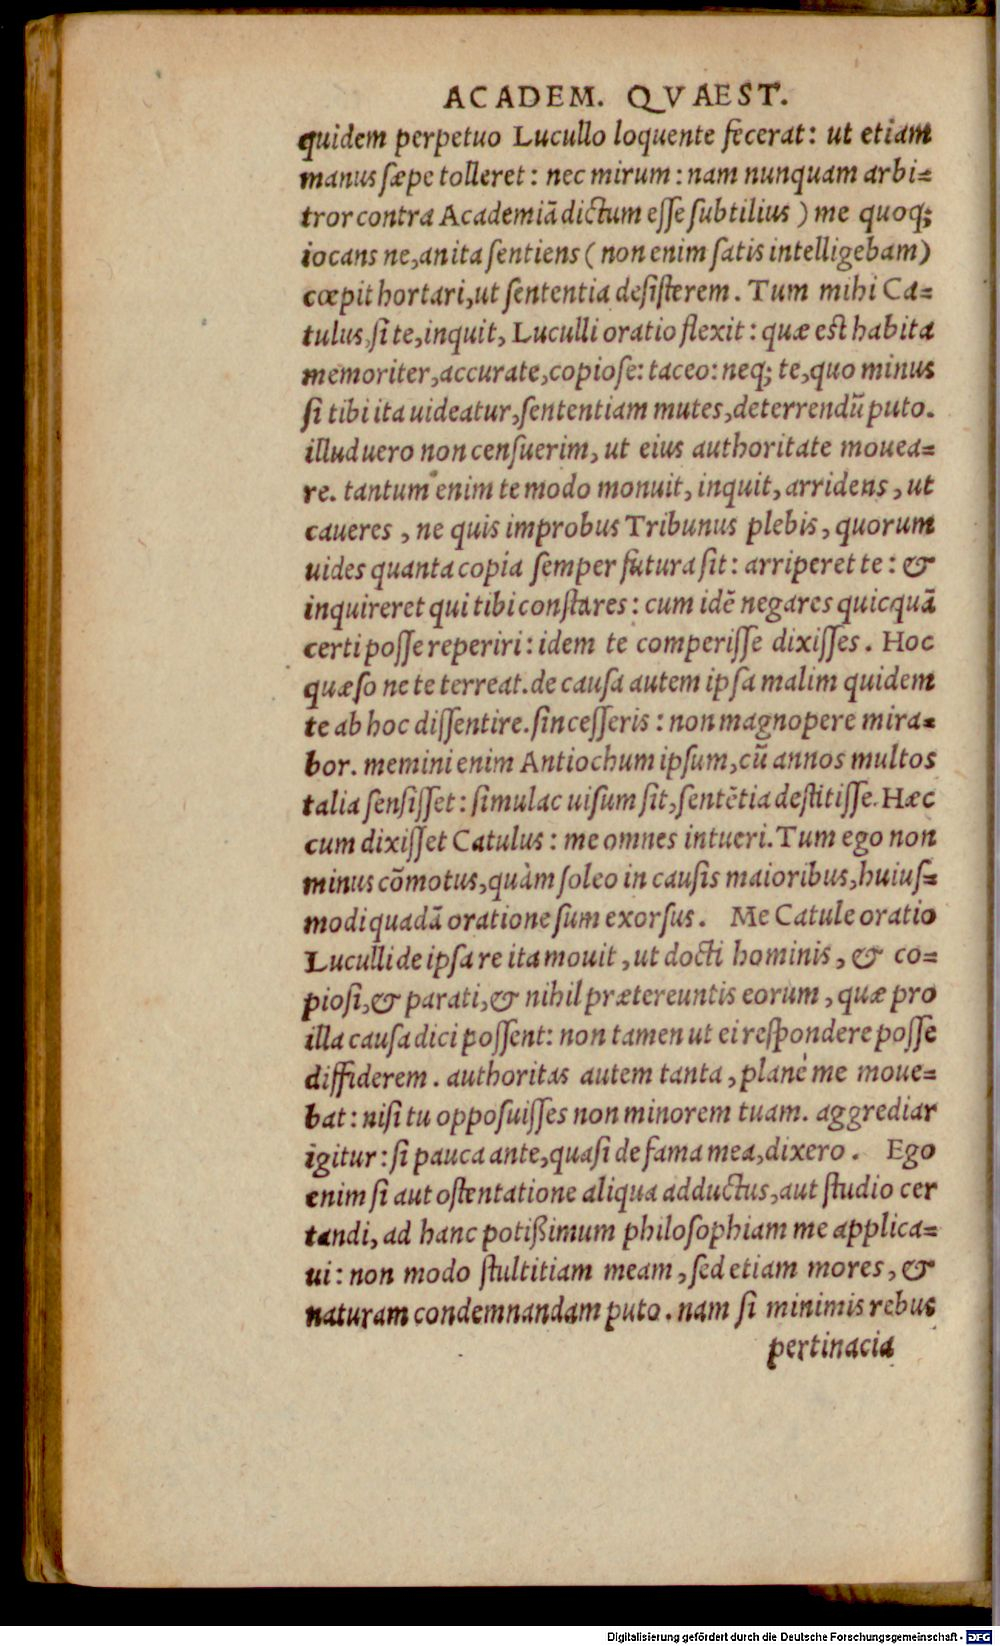 ACADEM. QVAEST.
quidem perpetuo Lucullo loquente fecerat: ut etiam
manus sæpe tolleret: nec mirum: nam nunquam arbi=
tror contra Academiā dictum esse subtilius) me quoq;
iocans ne, an ita sentiens (non enim satis intelligebam)
cœpit hortari, ut sententia desisterem. Tum mihi Ca=
tulus, si te, inquit, Luculli oratio flexit: quæ est habita
memoriter, accurate, copiose: taceo: neq; te, quo minus
si tibi ita uideatur, sententiam mutes, deterrendū puto.
illud uero non censuerim, ut eius authoritate mouea=
re. tantum enim te modo monuit, inquit, arridens, ut
caueres, ne quis improbus Tribunus plebis, quorum
uides quanta copia semper futura sit: arriperet te: &
inquireret qui tibi constares: cum idē negares quicquā
certi posse reperiri: idem te comperisse dixisses. Hoc
quæso ne te terreat. de causa autem ipsa malim quidem
te ab hoc dissentire. sin cesseris: non magnopere mira=
bor. memini enim Antiochum ipsum, cū annos multos
talia sensisset: simulac uisum sit, sentētia destitisse. Hæc
cum dixisset Catulus: me omnes intueri. Tum ego non
minus cōmotus, quàm soleo in causis maioribus, huius=
modi quadā oratione sum exorsus. Me Catule oratio
Luculli de ipsa re ita mouit, ut docti hominis, & co=
piosi, & parati, & nihil prætereuntis eorum, quæ pro
illa causa dici possent: non tamen ut ei respondere posse
diffiderem. authoritas autem tanta, planè me moue=
bat: nisi tu opposuisses non minorem tuam. aggrediar
igitur: si pauca ante, quasi de fama mea, dixero. Ego
enim si aut ostentatione aliqua adductus, aut studio cer
tandi, ad hanc potißimum philosophiam me applica=
ui: non modo stultitiam meam, sed etiam mores, &
naturam condemnandam puto. nam si minimis rebus
pertinacia
Digitalisierung gefördert durch die Deutsche Forschungsgemeinschaft - DFG